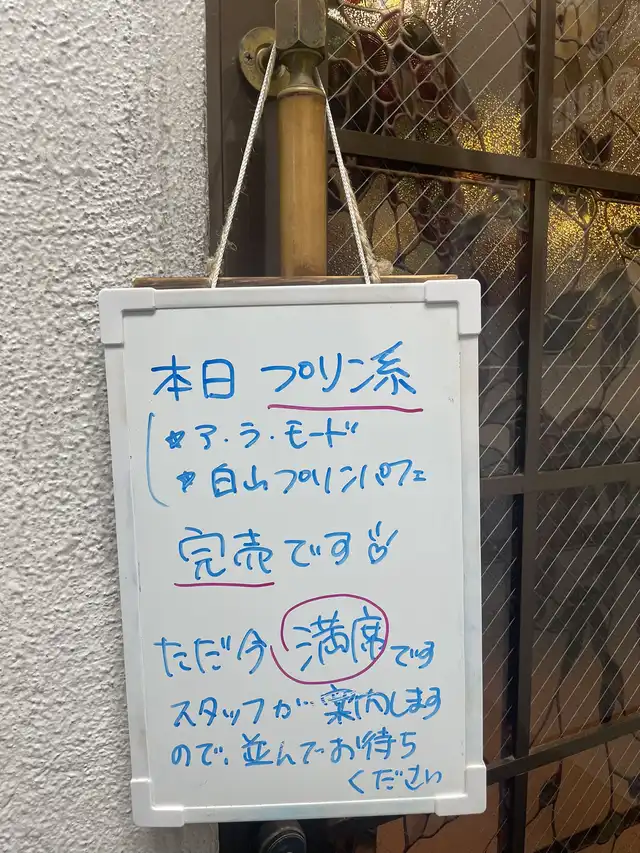 本日 プリン系
ア・ラ・モード
白山プリンパフェ
完売です
ただ今 満席です
スタッフが案内します
ので、並んでお待ち
ください